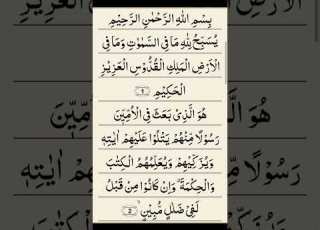 بِسْمِ اللهِ الرَّحْمٰنِ الرَّحِيْمِ
يُسَبِّحُ لِلّٰهِ مَا فِى السَّمٰوٰتِ وَمَا فِى
الْاَرْضِ الْمَلِكِ الْقُدُّوْسِ الْعَزِيْزِ
الْحَكِيْمِ ﴿۱﴾
هُوَ الَّذِىْ بَعَثَ فِى الْاُمِّيّٖنَ
رَسُوْلًا مِّنْهُمْ يَتْلُوْا عَلَيْهِمْ اٰيٰتِهٖ
وَيُزَكِّيْهِمْ وَيُعَلِّمُهُمُ الْكِتٰبَ
وَالْحِكْمَةَ ۗ وَاِنْ كَانُوْا مِنْ قَبْلُ
لَفِىْ ضَلٰلٍ مُّبِيْنٍ ﴿۲﴾